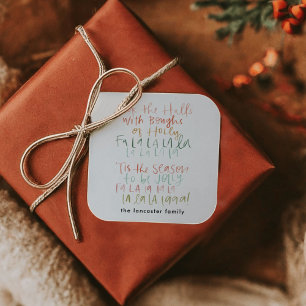 the Halls
with Boughs
of Holly
FA LA LA LA LA
LA LA LA LA
'Tis the Season
to be Jolly
FA LA LA LA LA
LA LA LA
the lancaster family